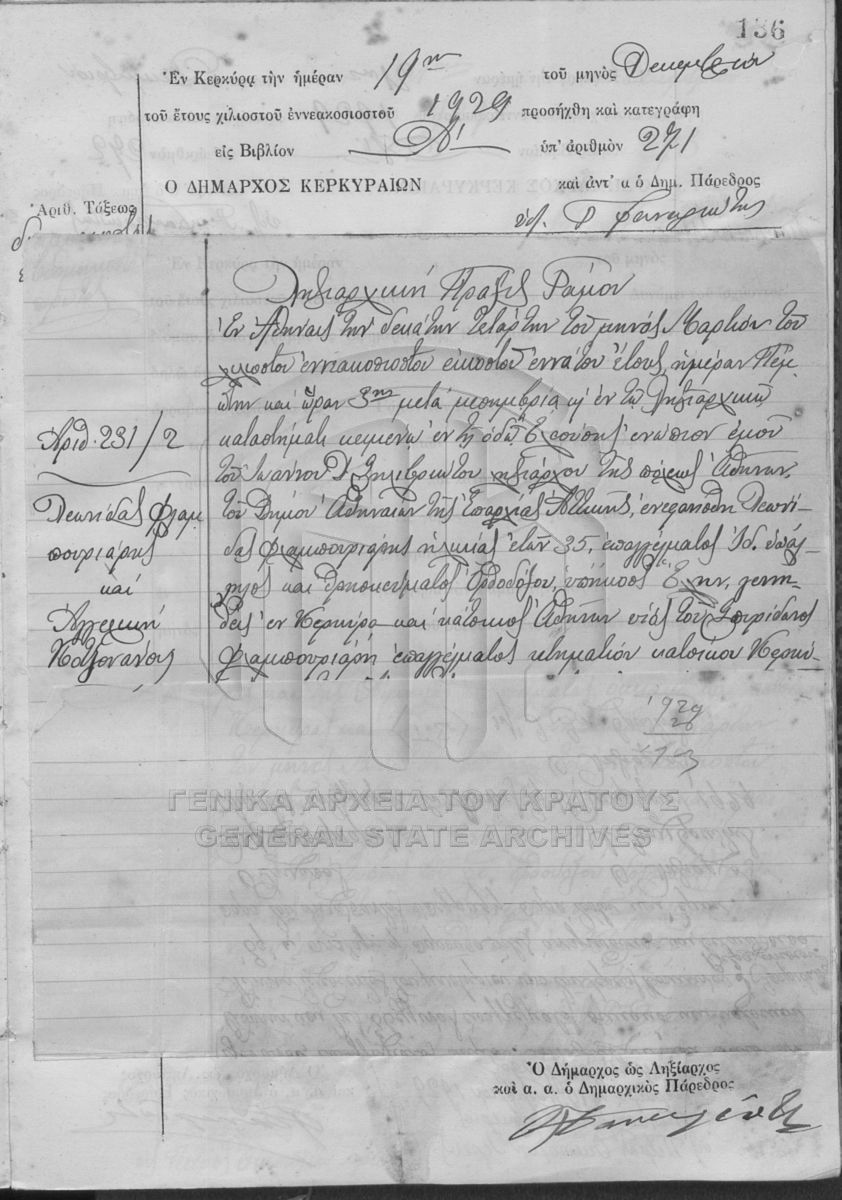 136
Ἐν Κερκύρᾳ τὴν ἡμέραν 19ην τοῦ μηνὸς Δεκεμβρίου
τοῦ ἔτους χιλιοστοῦ ἐννεακοσιοστοῦ 1929 προσήχθη καὶ κατεγράφη
εἰς Βιβλίον Δ' ὑπ' ἀριθμὸν 271
Ο ΔΗΜΑΡΧΟΣ ΚΕΡΚΥΡΑΙΩΝ καὶ ἀντ' α ὁ Δημ. Πάρεδρος
Ἀριθ. Τάξεως
Ληξιαρχική Πρᾶξις Γάμου
Ἐν Ἀθήναις τὴν δεκάτην τετάρτην τοῦ μηνὸς Μαρτίου τοῦ
χιλιοστοῦ ἐννεακοσιοστοῦ εἰκοστοῦ ἐννάτου ἔτους, ἡμέραν Πέμ-
πτην καὶ ὥραν 5ην μετὰ μεσημβρίαν ἐν τῷ Ληξιαρχικῷ
καταστήματι κειμένῳ ἐν τῇ ὁδῷ ἐνώπιον ἐμοῦ
τοῦ Ἰωάννου Δ. ληξιάρχου τῆς πόλεως Ἀθηνῶν,
τοῦ Δήμου Ἀθηναίων τῆς Ἐπαρχίας Ἀττικῆς, ἐνεφανίσθη Λεωνί-
δας Φλαμπουριάρης ἡλικίας ἐτῶν 35, ἐπαγγέλματος Ἰδ. ὑπάλ-
ληλος καὶ θρησκεύματος Ὀρθοδόξου, ὑπήκοος Ἕλην, γεννη-
θεὶς ἐν Κερκύρᾳ καὶ κάτοικος Ἀθηνῶν υἱὸς τοῦ Σπυρίδωνος
Φλαμπουριάρη ἐπαγγέλματος κτηματίου κατοίκου Κερκύ-
Ἀριθ. 231/2
Λεωνίδας Φλαμ
πουριάρης
καὶ
Ἀγγελική
1929
ΓΕΝΙΚΑ ΑΡΧΕΙΑ ΤΟΥ ΚΡΑΤΟΥΣ
GENERAL STATE ARCHIVES
Ὁ Δήμαρχος ὡς Ληξίαρχος
καὶ α. α. ὁ Δημαρχικὸς Πάρεδρος